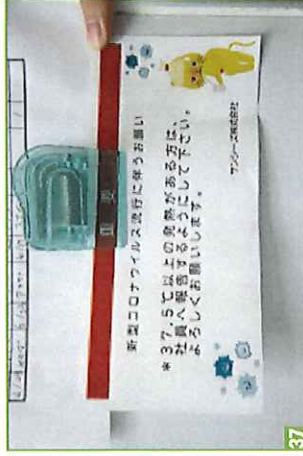 重要
新型コロナウイルス流行に伴うお願い
＊37.5℃以上の発熱がある方は、
社員へ報告するようにして下さい。
よろしくお願いします。
サンシーズ株式会社
37